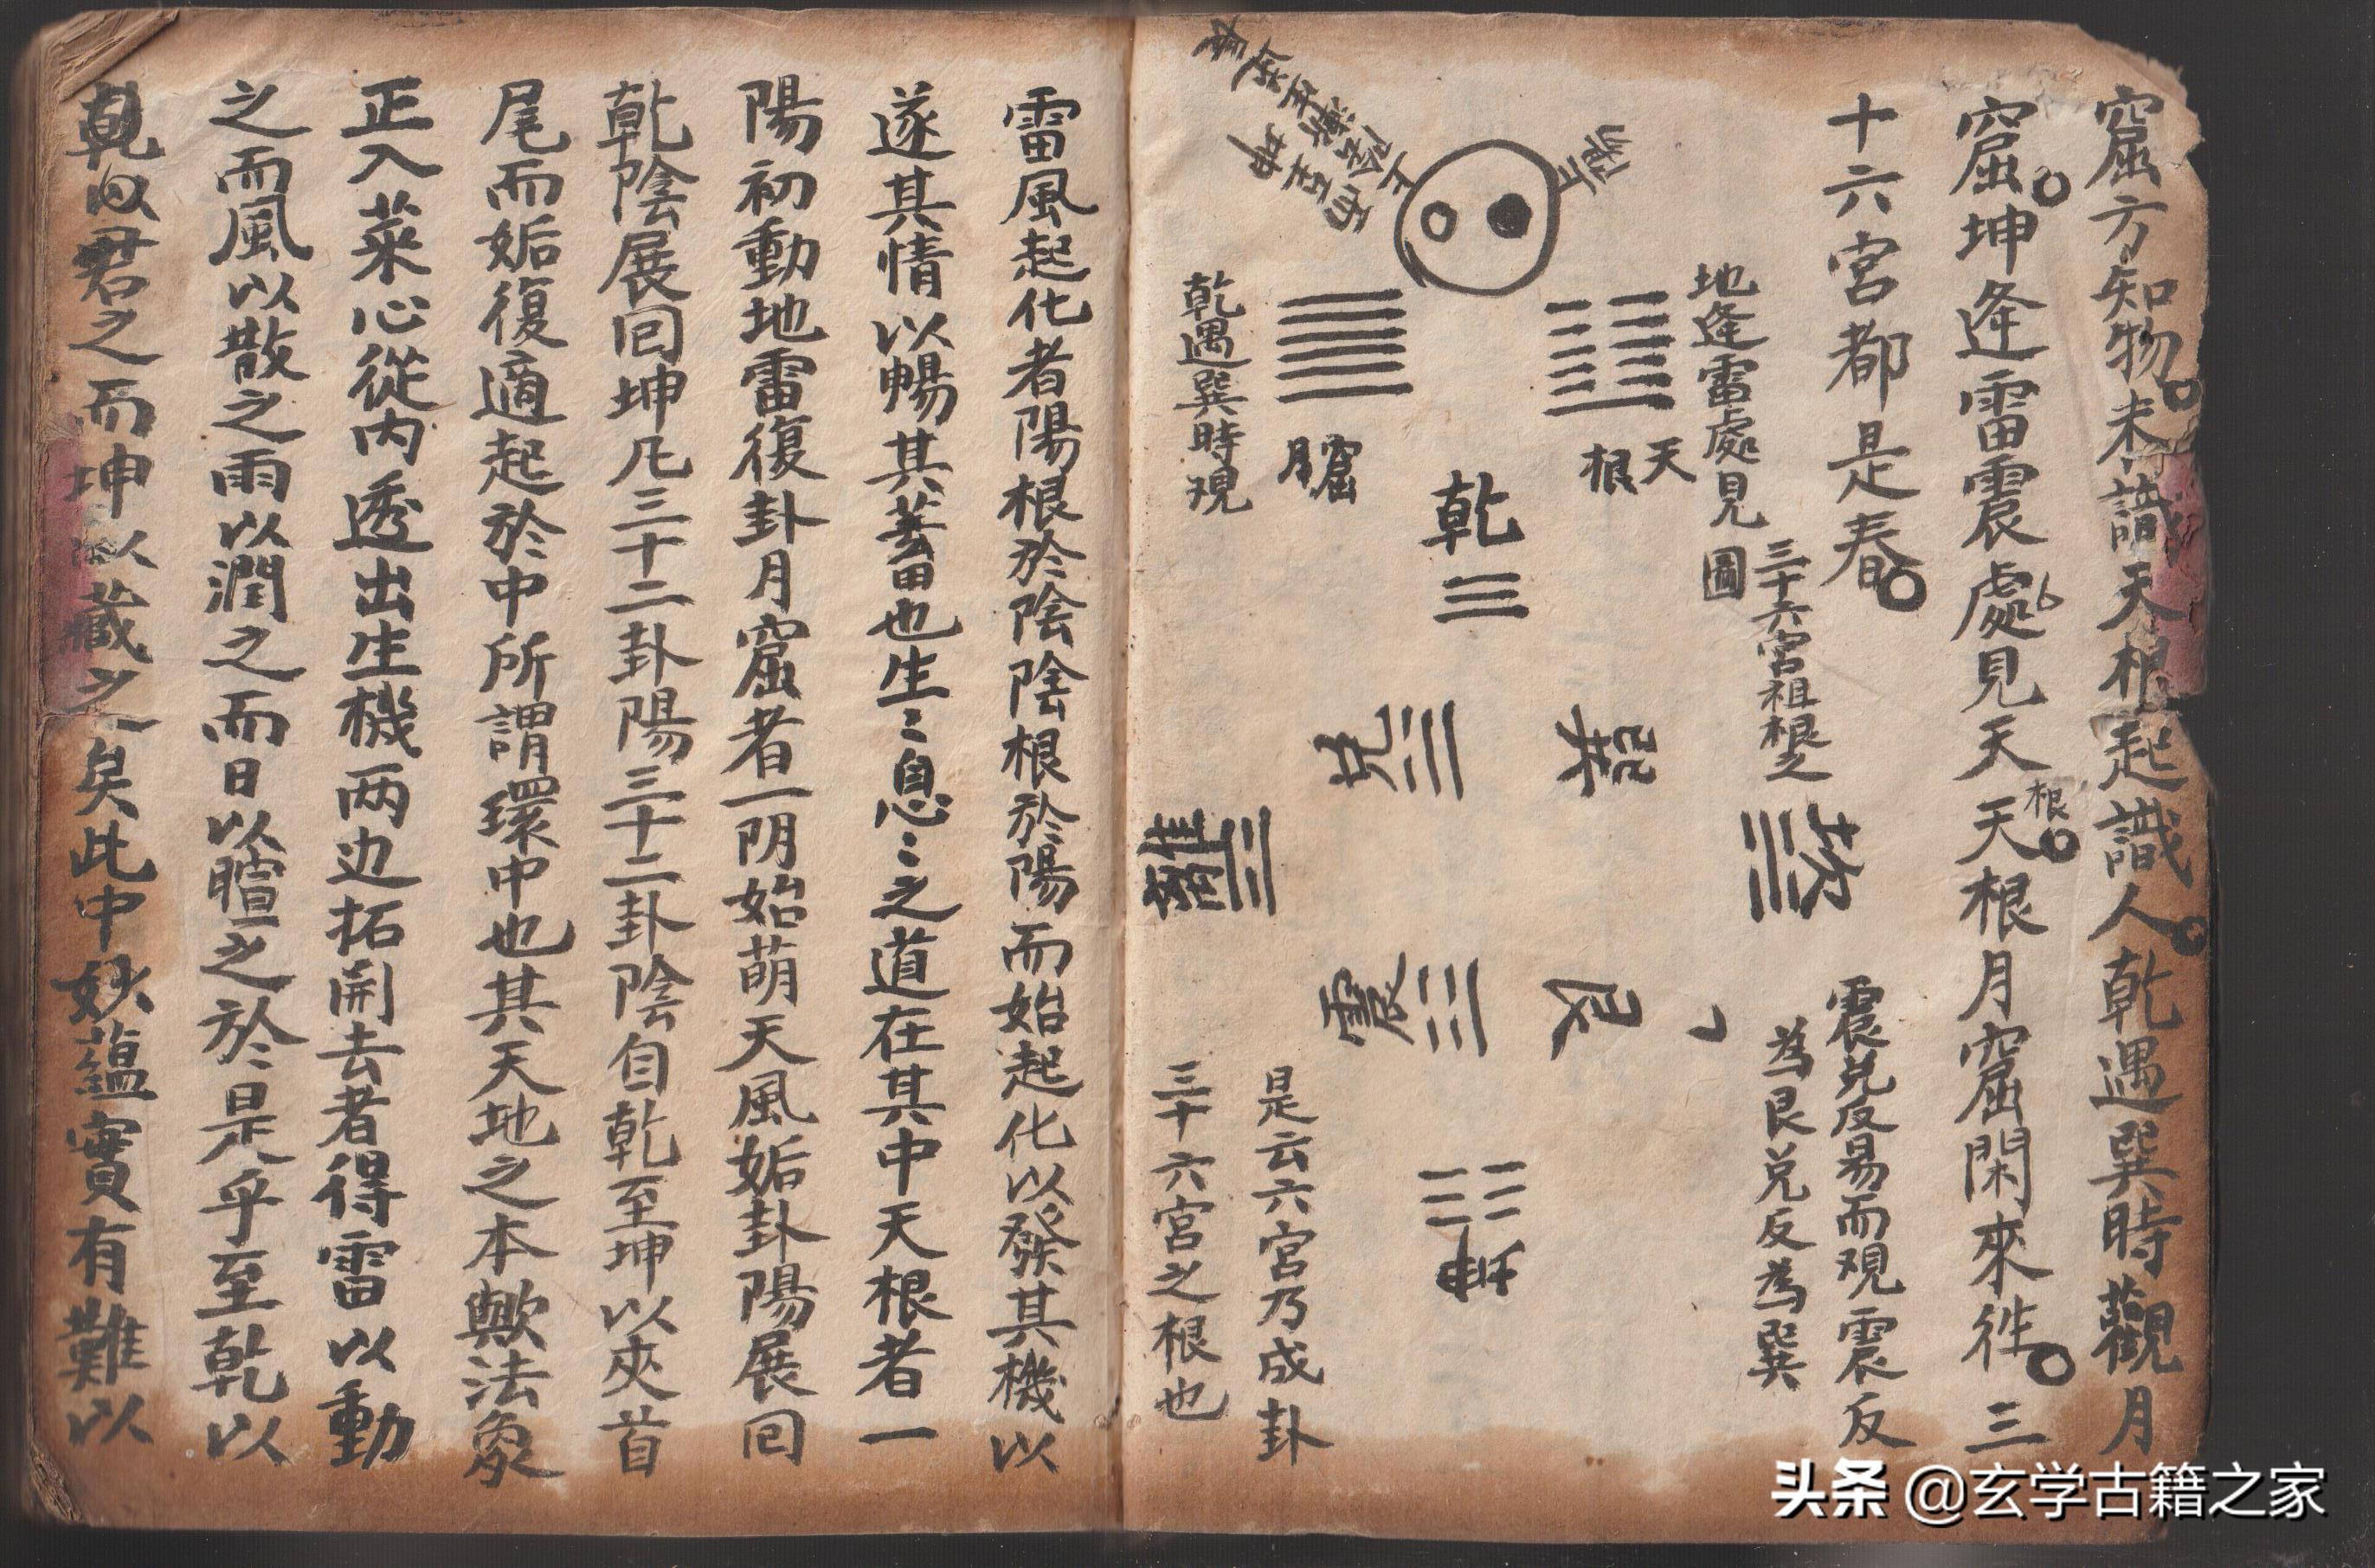 窟方知物未識天根起識人乾遇巽時觀月
窟坤逢雷震處見天天根月窟閑來徃三
根
十六宮都是春
三十六宮祖根之
圖
地逢雷處見
天根
月窟
乾遇巽時观
而至坤
乾
兌
巽
離
坎
震
艮
坤
震兌反易而观震反
為艮兌反為巽
是云六宮乃成卦
三十六宮之根也
雷風起化者陽根於陰陰根於陽而始起化以發其機以
遂其情以暢其蓄也生〻息〻之道在其中天根者一
陽初動地雷復卦月窟者一阴始萌天風姤卦陽展回
乾陰展回坤凡三十二卦陽三十二卦陰自乾至坤以夾首
尾而姤復適起於中所謂環中也其天地之本歟法象
正入菜心從内透出生機两边拓開去者得雷以動
之而風以散之雨以潤之而日以暄之於是乎至乾以
乾以君之而坤以藏之矣此中妙蘊實有難以
头条 @玄学古籍之家